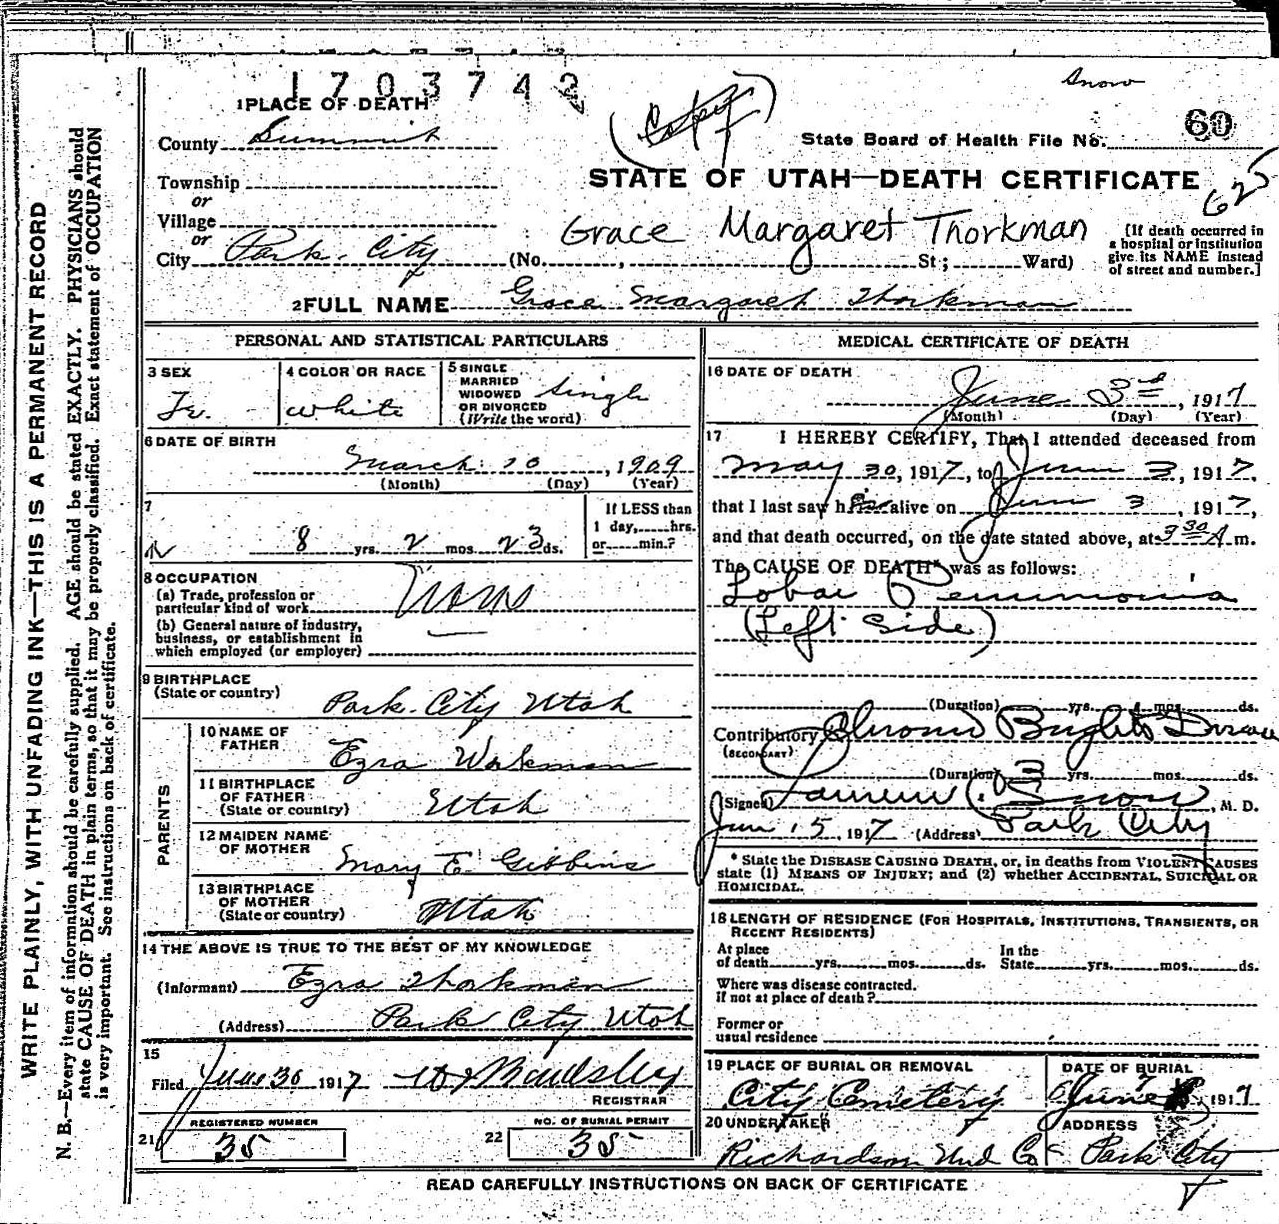 1703742
Snow
(Copy)
1 PLACE OF DEATH
County Summit
State Board of Health File No. 60
625
STATE OF UTAH—DEATH CERTIFICATE
Township
or
Village
or
City Park City
Grace Margaret Thorkman
(No. , St; Ward)
[If death occurred in a hospital or institution give its NAME instead of street and number.]
2 FULL NAME Grace Margaret Thorkman
PERSONAL AND STATISTICAL PARTICULARS
3 SEX Fe.
4 COLOR OR RACE white
5 SINGLE MARRIED WIDOWED OR DIVORCED (Write the word) single
6 DATE OF BIRTH
March 10, 1909
(Month) (Day) (Year)
7
8 yrs. 2 mos. 23 ds.
If LESS than 1 day, hrs. or min.?
8 OCCUPATION
(a) Trade, profession or particular kind of work None
(b) General nature of industry, business, or establishment in which employed (or employer)
9 BIRTHPLACE
(State or country) Park City Utah
PARENTS
10 NAME OF FATHER Ezra Workman
11 BIRTHPLACE OF FATHER (State or country) Utah
12 MAIDEN NAME OF MOTHER Mary E. Gibbins
13 BIRTHPLACE OF MOTHER (State or country) Utah
14 THE ABOVE IS TRUE TO THE BEST OF MY KNOWLEDGE
(Informant) Ezra Thorkman
(Address) Park City Utah
15
Filed June 30 1917
REGISTRAR
REGISTERED NUMBER
21 35
NO. OF BURIAL PERMIT
22 35
MEDICAL CERTIFICATE OF DEATH
16 DATE OF DEATH
June 3rd, 1917
(Month) (Day) (Year)
17 I HEREBY CERTIFY, That I attended deceased from
May 30, 1917, to June 3, 1917,
that I last saw her alive on June 3, 1917,
and that death occurred, on the date stated above, at 9 30 A m.
The CAUSE OF DEATH* was as follows:
Lobar Pneumonia
(Left Side)
(Duration) yrs. mos. ds.
Contributory Chronic Brights Disease
(SECONDARY)
(Duration) 3 yrs. mos. ds.
(Signed) Snow, M. D.
June 5, 1917 (Address) Park City
* State the DISEASE CAUSING DEATH, or, in deaths from VIOLENT CAUSES
state (1) MEANS OF INJURY; and (2) whether ACCIDENTAL, SUICIDAL OR
HOMICIDAL.
18 LENGTH OF RESIDENCE (FOR HOSPITALS, INSTITUTIONS, TRANSIENTS, OR
RECENT RESIDENTS)
At place of death yrs. mos. ds. In the State yrs. mos. ds.
Where was disease contracted.
if not at place of death?
Former or
usual residence
19 PLACE OF BURIAL OR REMOVAL
City Cemetery
DATE OF BURIAL
June 1917
20 UNDERTAKER
Richardson Und Co
ADDRESS
Park City
READ CAREFULLY INSTRUCTIONS ON BACK OF CERTIFICATE
WRITE PLAINLY, WITH UNFADING INK—THIS IS A PERMANENT RECORD
N. B.—Every item of information should be carefully supplied. AGE should be stated EXACTLY. PHYSICIANS should
state CAUSE OF DEATH in plain terms, so that it may be properly classified. Exact statement of OCCUPATION
is very important. See instructions on back of certificate.